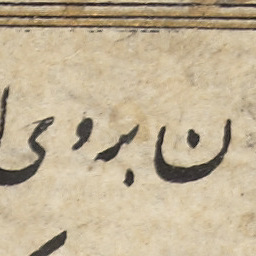 ن بروی